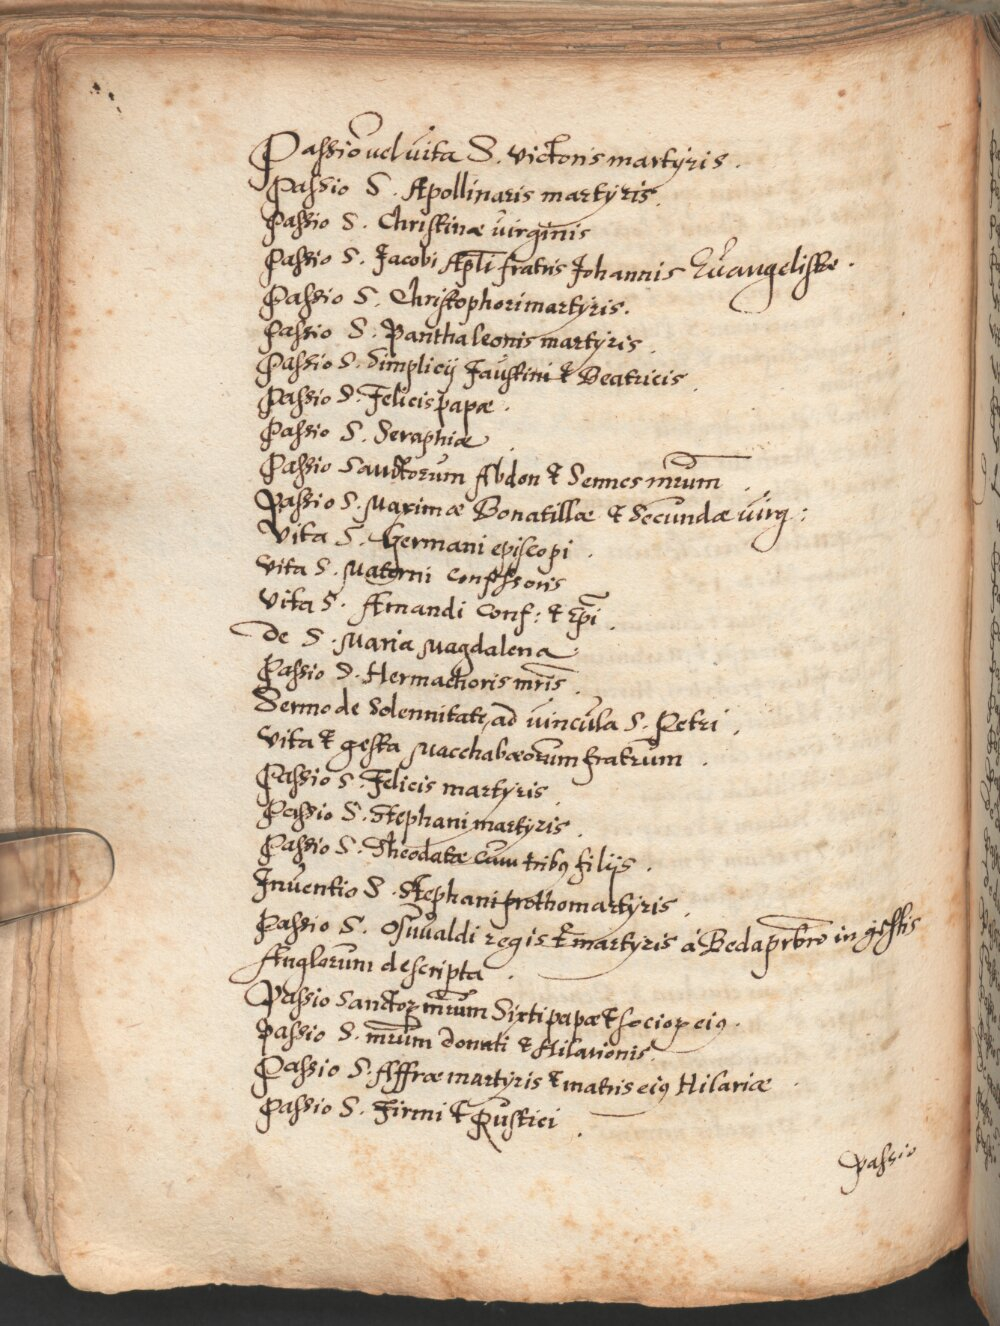 Passio vel vita S. Victoris martyris.
Passio S. Apollinaris martyris.
Passio S. Christinæ virginis
Passio S. Jacobi Apli fratris Johannis Evangelistæ.
Passio S. Christophori martyris.
Passio S. Panthaleonis martyris.
Passio S. Simplicij Faustini & Beatricis.
Passio S. Felicis papæ.
Passio S. Seraphiæ.
Passio Sanctorum Abdon & Sennes mrum.
Passio S. Maximæ Donatillæ & Secundæ virg:
Vita S. Germani episcopi.
Vita S. Materni Confessoris
Vita S. Amandi Conf: & Epi.
De S. Maria Magdalena
Passio S. Hermachoris mris.
Sermo de Solennitate ad vincula S. Petri.
Vita & gesta Macchabæorum fratrum.
Passio S. Felicis martyris.
Passio S. Stephani martyris.
Passio S. Theodatæ cum tribꝰ filijs.
Inventio S. Stephani prothomartyris.
Passio S. Osuualdi regis & martyris à Beda prbro in gestis
Anglorum descripta.
Passio Sanctoꝝ mrum Sixti papæ & socioꝝ eiꝰ.
Passio S. mrum Donati & Hilarionis.
Passio S. Affræ martyris & matris eiꝰ Hilariæ.
Passio S. Firmi & Rustici.
Passio